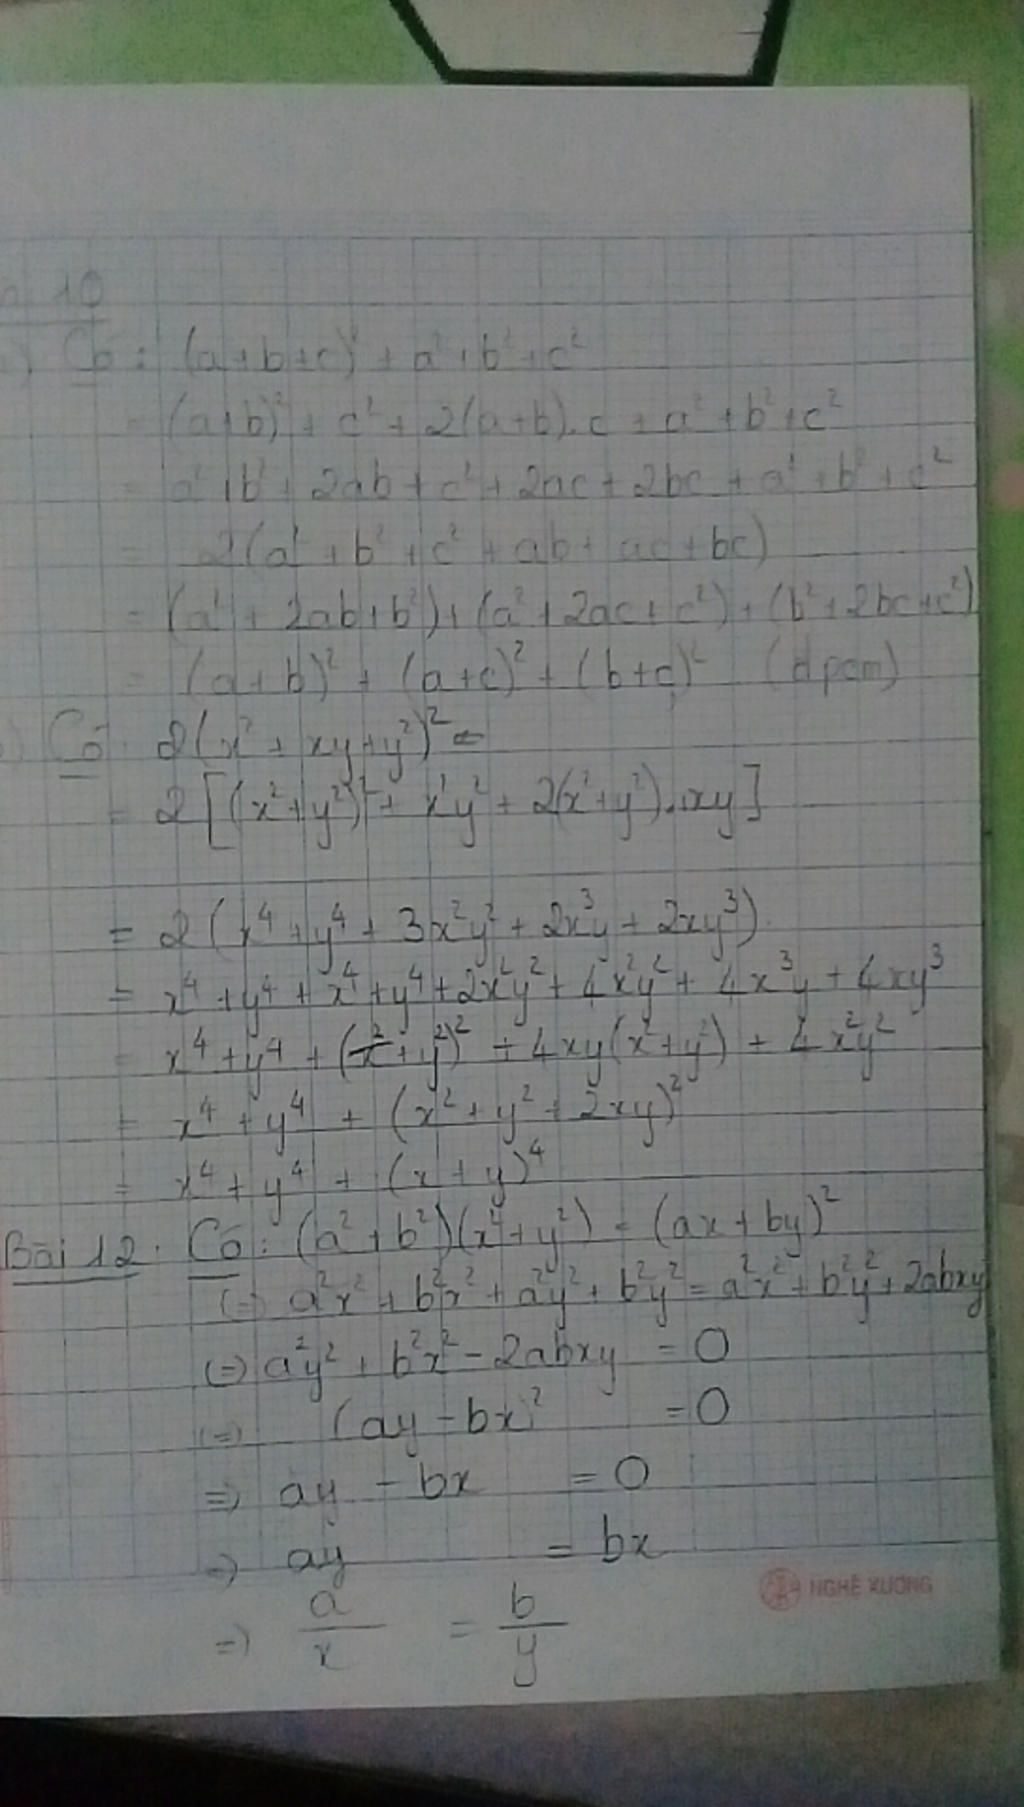 10
Có: (a+b+c)² + a² + b² + c²
= (a+b)² + c² + 2(a+b).c + a² + b² + c²
= a² + b² + 2ab + c² + 2ac + 2bc + a² + b² + c²
= 2(a² + b² + c² + ab + ac + bc)
= (a² + 2ab + b²) + (a² + 2ac + c²) + (b² + 2bc + c²)
= (a+b)² + (a+c)² + (b+c)² (dpcm)
Có: 2(x² + xy + y²)² =
= 2[(x² + y²)² + x²y² + 2(x² + y²).xy]
= 2(x⁴ + y⁴ + 3x²y² + 2x³y + 2xy³).
= x⁴ + y⁴ + x⁴ + y⁴ + 2x²y² + 4x²y² + 4x³y + 4xy³
= x⁴ + y⁴ + (x² + y²)² + 4xy(x² + y²) + 4x²y²
= x⁴ + y⁴ + (x² + y² + 2xy)²
= x⁴ + y⁴ + (x + y)⁴
Bài 12. Có: (a² + b²)(x² + y²) = (ax + by)²
(=) a²x² + b²x² + a²y² + b²y² = a²x² + b²y² + 2abxy
(=) a²y² + b²x² - 2abxy = 0
(=) (ay - bx)² = 0
=) ay - bx = 0
=) ay = bx
=) a/x = b/y
NGHÊ XUONG